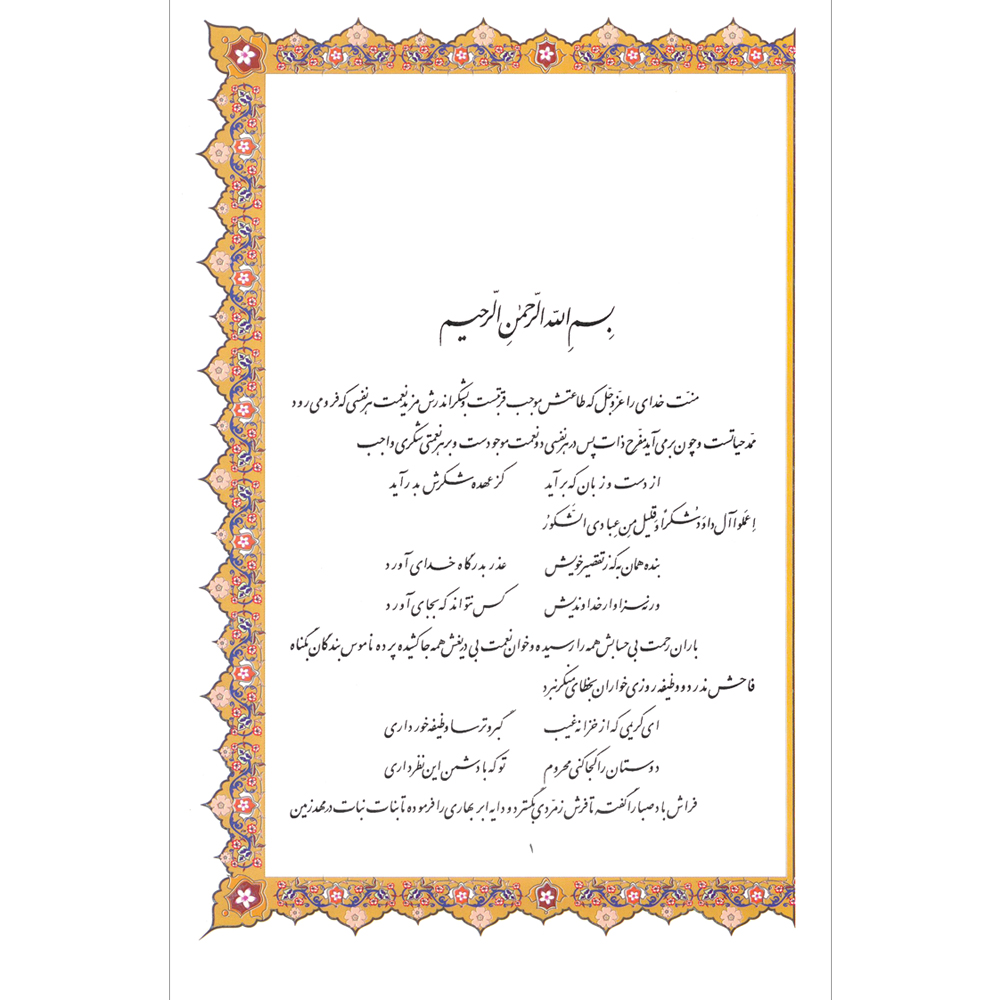 بِسمِ اللّه الرّحمٰنِ الرّحیم
منّت خدای را عزّ و جلّ که طاعتش موجب قربتست و بشکر اندرش مزید نعمت هر نفسی که فرو می رود
ممدّ حیاتست و چون بر می آید مفرّح ذات پس در هر نفسی دو نعمت موجودست و بر هر نعمتی شکری واجب
از دست و زبان که برآید کز عهده شکرش بدر آید
اِعمَلوا آل داوَد شُکراً وَ قَلیل مِن عِبادی الشَّکورُ
بنده همان به که ز تقصیر خویش عذر بدرگاه خدای آورد
ورنه سزاوار خداوندیش کس نتواند که بجای آورد
باران رحمت بی حسابش همه را رسیده و خوان نعمت بی دریغش همه جا کشیده پرده ناموس بندگان بگناه
فاحش ندرد و وظیفه روزی خواران بخطای منکر نبرد
ای کریمی که از خزانه غیب گبر و ترسا وظیفه خور داری
دوستان را کجا کنی محروم تو که با دشمن این نظر داری
فراش باد صبا را گفته تا فرش زمرّدی بگسترد و دایه ابر بهاری را فرموده تا بنات نبات در مهد زمین
۱